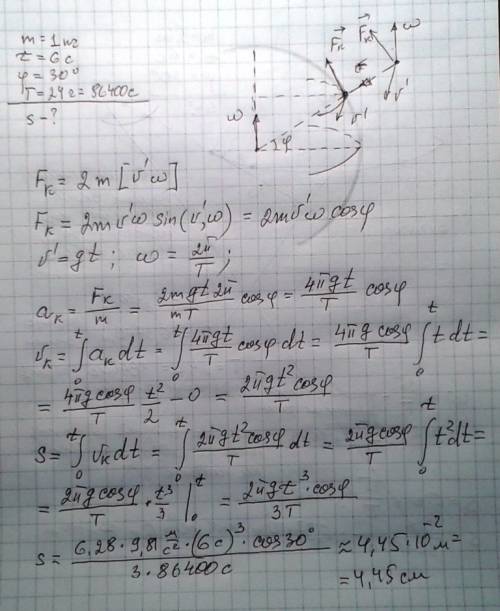 m = 1 кг
t = 6 c
φ = 30°
T = 24 ч = 86400 c
s - ?
F⃗к F⃗к ω
ω φ v' v'
Fк = 2m [v'ω]
Fк = 2mv'ω sin(v',ω) = 2mv'ω cosφ
v' = gt ; ω = 2π/T ;
aк = Fк/m = 2mgt2π/mT cosφ = 4πgt/T cosφ
vк = ∫₀ᵗ aк dt = ∫₀ᵗ 4πgt/T cosφ dt = 4πg cosφ/T ∫₀ᵗ t dt =
= 4πg cosφ/T · t²/2 - 0 = 2πgt² cosφ/T
s = ∫₀ᵗ vк dt = ∫₀ᵗ 2πgt² cosφ/T dt = 2πg cosφ/T ∫₀ᵗ t² dt =
= 2πg cosφ/T · t³/3 |₀ᵗ = 2πgt³ · cosφ/3T
s = 6,28 · 9,81 м/с² · (6c)³ · cos30°/3 · 86400 c ≈ 4,45 · 10⁻² м =
= 4,45 см